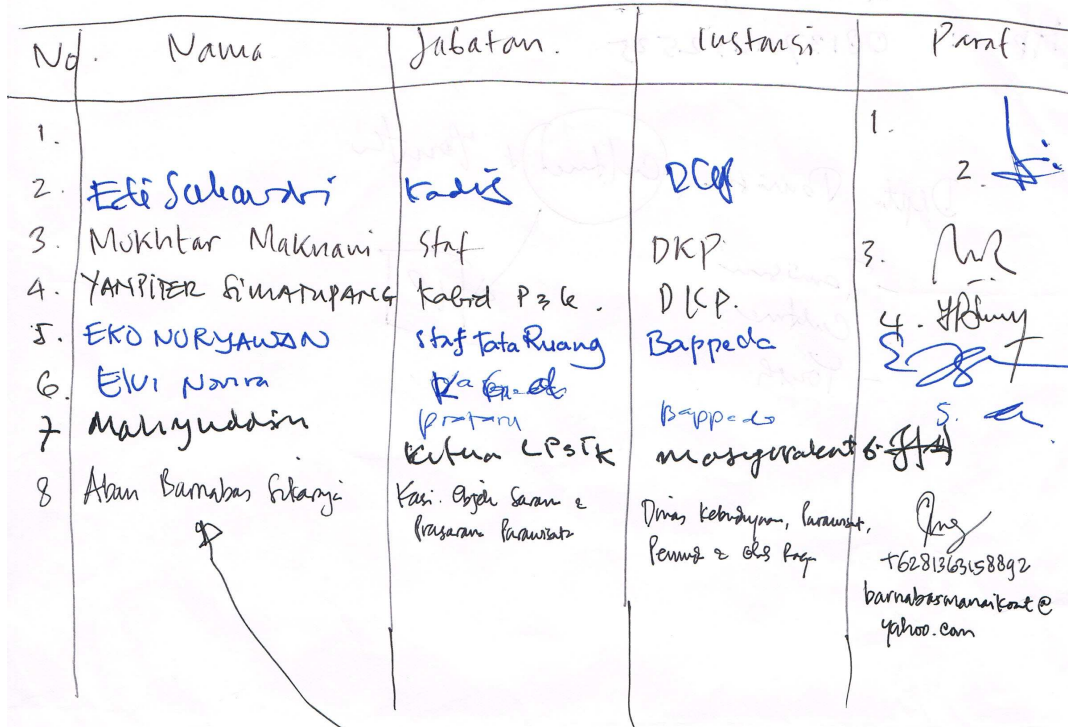 No. Nama Jabatan. Instansi Paraf.
1. 1.
2. Edi Sukardi Kadis DKP 2.
3. Mukhtar Maknani Staf DKP 3.
4. YANPITER SIMATUPANG Kabid P3K. DKP. 4.
5. EKO NURYAWAN Staf Tata Ruang Bappeda
6. Elvi Novira
7 Mahyuddin Bappeda 5.
Ketua LPSTK 6.
8 Aban Barnabas Kasi. Objek Sarana &
Prasarana Pariwisata Dinas Kebudayaan, Pariwisata,
Pemuda & Olah Raga
+6281363158892
@
yahoo.com